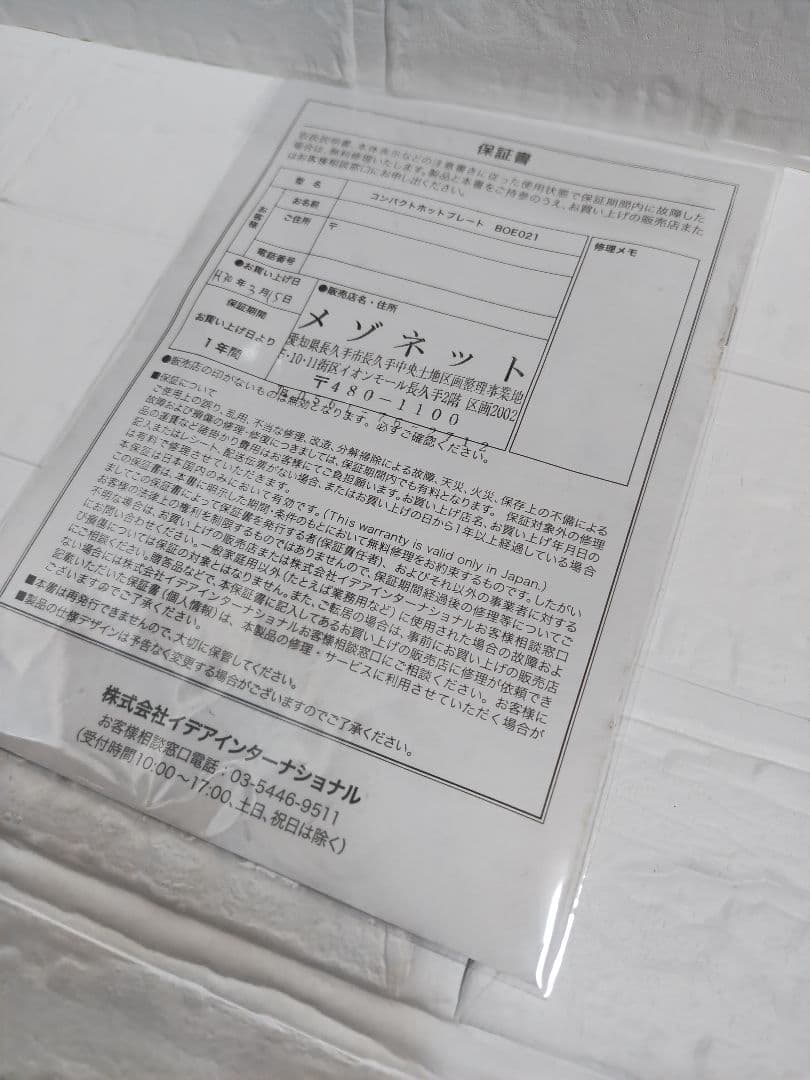 保証書
取扱説明書、本体表示などの注意書きに従った使用状態で保証期間内に故障した
場合は、無料修理いたします。製品と本書をご持参のうえ、お買い上げの販売店また
はお客様相談窓口にお申し出ください。
型 名 コンパクトホットプレート BOE021
お客様
お名前
ご住所 〒
電話番号
修理メモ
●お買い上げ日
H30年3月15日
保証期間
お買い上げ日より
1年間
●販売店名・住所
メゾネット
愛知県長久手市長久手中央土地区画整理事業地
5・10・11街区イオンモール長久手2階 区画2002
〒480-1100
●販売店の印がないものは無効となります。必ずご確認ください。
■保証について
ご使用上の誤り、乱用、不当な修理、改造、分解掃除による故障、天災、火災、保存上の不備による
故障および損傷の修理・修復につきましては、保証期間内でも有料となります。保証対象外の修理
品の運賃など諸掛かり費用はお客様にてご負担願います。お買い上げ店名、お買い上げ年月日の
記入またはレシート、配送伝票がない場合、またはお買い上げの日から1年以上経過している場合
は有料で修理させていただきます。
本保証は日本国内のみにおいて有効です。(This warranty is valid only in Japan.)
この保証書は、本書に明示した期間・条件のもとにおいて無料修理をお約束するものです。したがい
ましてこの保証書によって保証書を発行する者(保証責任者)、およびそれ以外の事業者に対する
お客様の法律上の権利を制限するものではありませんので、保証期間経過後の修理等についてご
不明な場合は、お買い上げの販売店または株式会社イデアインターナショナルお客様相談窓口
にお問い合わせください。一般家庭用以外(たとえば業務用など)に使用された場合の故障およ
び損傷については保証の対象とはなりません。また、ご転居の場合は、事前にお買い上げの販売店
にご相談ください。贈答品などで、本保証書に記入してあるお買い上げの販売店に修理が依頼でき
ない場合には株式会社イデアインターナショナルお客様相談窓口にご相談ください。お客様に
記載いただいた保証書(個人情報)は、本製品の修理・サービスに利用させていただく場合が
ございますのでご了承ください。
■本書は再発行できませんので、大切に保管してください。
■製品の仕様デザインは予告なく変更する場合がございますのでご了承ください。
株式会社イデアインターナショナル
お客様相談窓口電話：03-5446-9511
(受付時間10:00〜17:00、土日、祝日は除く)